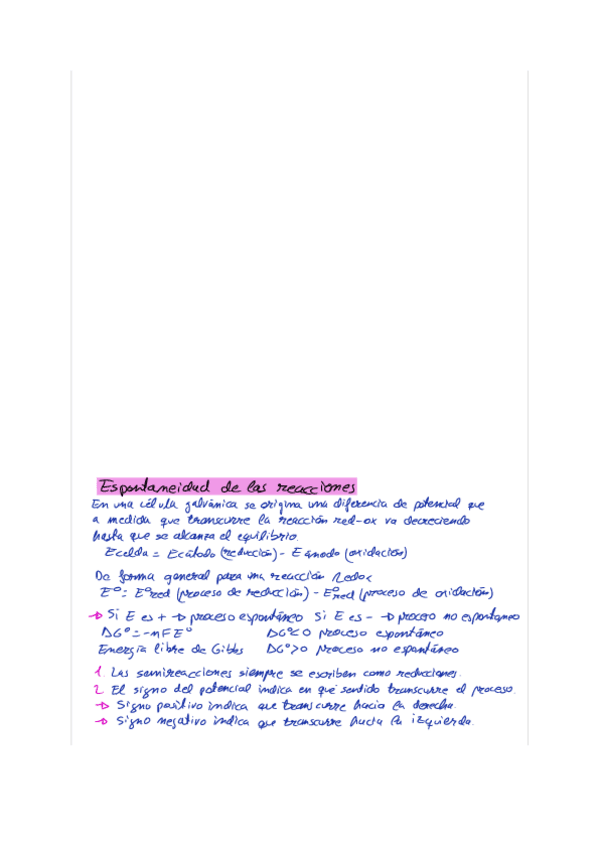 Espontaneidad de las reacciones
En una célula galvánica se origina una diferencia de potencial que
a medida que transcurre la reacción red-ox va decreciendo
hasta que se alcanza el equilibrio.
Ecelda = Ecátodo (reducción) - Eánodo (oxidación)
De forma general para una reacción Redox
E° = E°red (proceso de reducción) - E°red (proceso de oxidación)
→ Si E es + → proceso espontáneo Si E es - → proceso no espontaneo
ΔG° = -nFE° ΔG°<0 proceso espontáneo
Energía libre de Gibbs ΔG°>0 proceso no espontáneo
1. Las semireacciones siempre se escriben como reducciones.
2. El signo del potencial indica en qué sentido transcurre el proceso.
→ Signo positivo indica que transcurre hacia la derecha.
→ Signo negativo indica que transcurre hacia la izquierda.